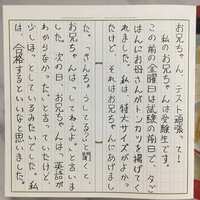 お兄ちゃん、テスト頑張って！
私のお兄ちゃんは受験生です。
この前の金曜日は試験の前日で、夕ご
はんにお母さんがトンカツを揚げてく
れました。私は、特大サイズがよかっ
たけど、それはお兄ちゃんにあげまし
た。「きんちょうしてる？」と聞くと、
お兄ちゃんは「してねえよ。」と言いま
した。次の日、お兄ちゃんは、「英語が
わからなかった。」と言っていたけど、
少しほっとしているみたいでした。私
は、合格するといいなと思いました。